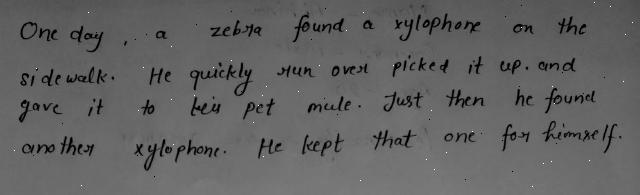 One day, a zebra found a xylophone on the
sidewalk. He quickly run over picked it up. and
gave it to his pet mule. Just then he found
another xylophone. He kept that one for himself.